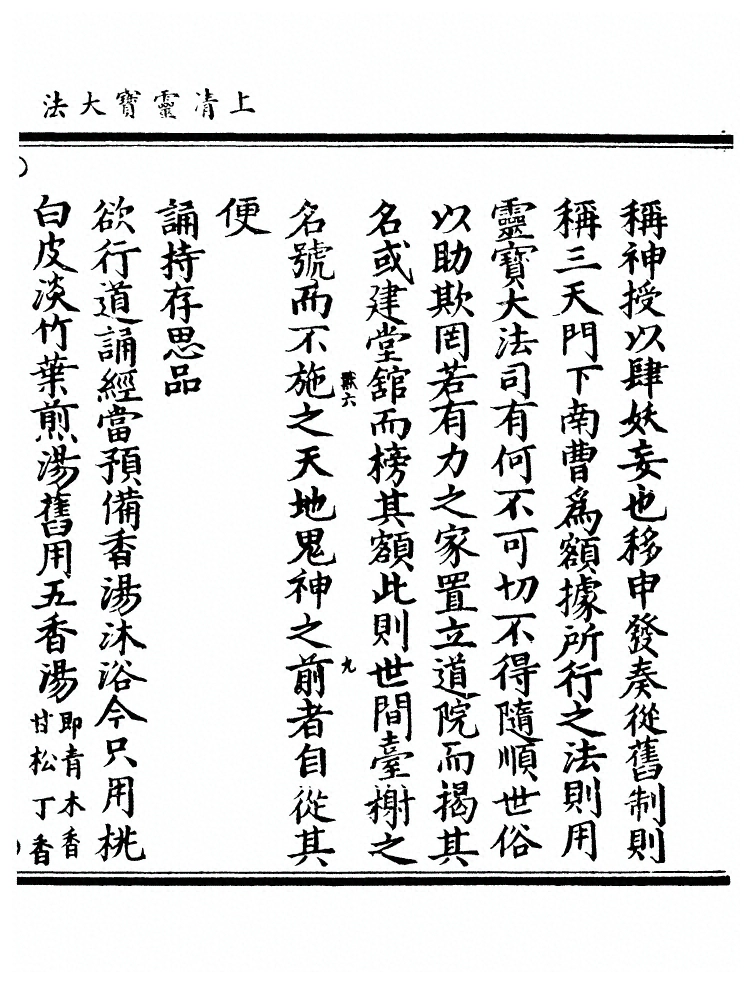 上清靈寶大法
稱神授以肆妖妄也移申發奏從舊制則
稱三天門下南曹爲額據所行之法則用
靈寶大法司有何不可切不得隨順世俗
以助欺罔若有力之家置立道院而揭其
名或建堂舘而榜其額此則世間臺榭之
名號而不施之天地鬼神之前者自從其
九
便
誦持存思品
欲行道誦經當預備香湯沐浴今只用桃
白皮淡竹葉煎湯舊用五香湯即青木香甘松丁香